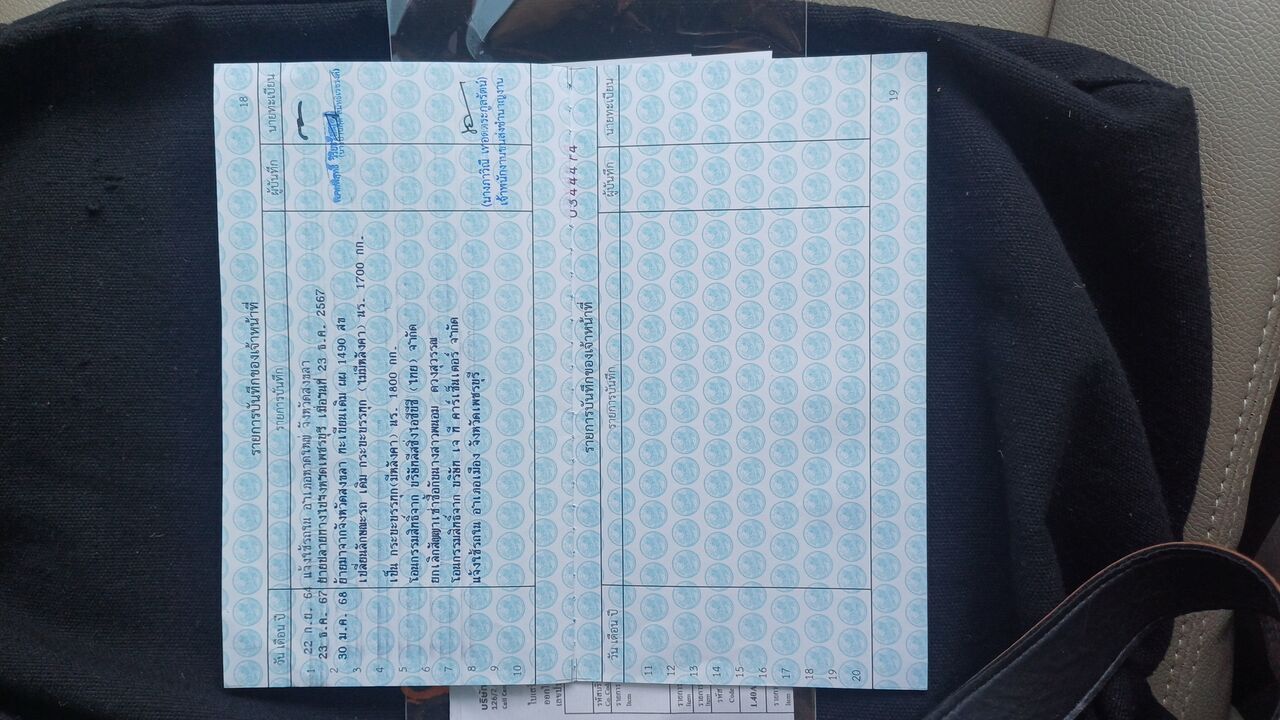 18
รายการบันทึกของเจ้าหน้าที่
วัน เดือน ปี รายการบันทึก ผู้บันทึก นายทะเบียน
1 22 ก.ย. 64 แจ้งใช้รถใน อำเภอหาดใหญ่ จังหวัดสงขลา
2 23 ธ.ค. 67 ย้ายปลายทางไปจังหวัดเพชรบุรี เมื่อวันที่ 23 ธ.ค. 2567
3 30 ม.ค. 68 ย้ายมาจากจังหวัดสงขลา ทะเบียนเดิม ผผ 1490 สข
เปลี่ยนลักษณะรถ เดิม กระบะบรรทุก (ไม่มีหลังคา) นร. 1700 กก.
4 เป็น กระบะบรรทุก(มีหลังคา) นร. 1800 กก.
5 โอนกรรมสิทธิ์จาก บริษัทลีสซิ่งไอซีบีซี (ไทย) จำกัด
6 ยกเลิกสัญญาเช่าซื้อกับนางสาวพนอม ดวงสุวรรณ
7 โอนกรรมสิทธิ์จาก บริษัท เจ ที คาร์เซ็นเตอร์ จำกัด
8 แจ้งใช้รถใน อำเภอเมือง จังหวัดเพชรบุรี
(นางภาวิณี เทอดตระกูลรัตน์)
เจ้าพนักงานขนส่งชำนาญงาน
9
10
รายการบันทึกของเจ้าหน้าที่
วัน เดือน ปี รายการบันทึก ผู้บันทึก นายทะเบียน
11
12
13
14
15
16
17
18
19
20
19
บริษัท
126/2
รายการ
Item
Code
1.40A